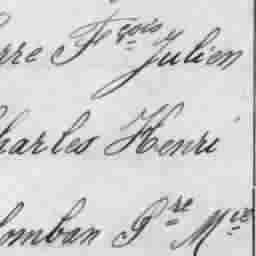 rre Fçois Julien
harles Henri
lomban Pre Mce